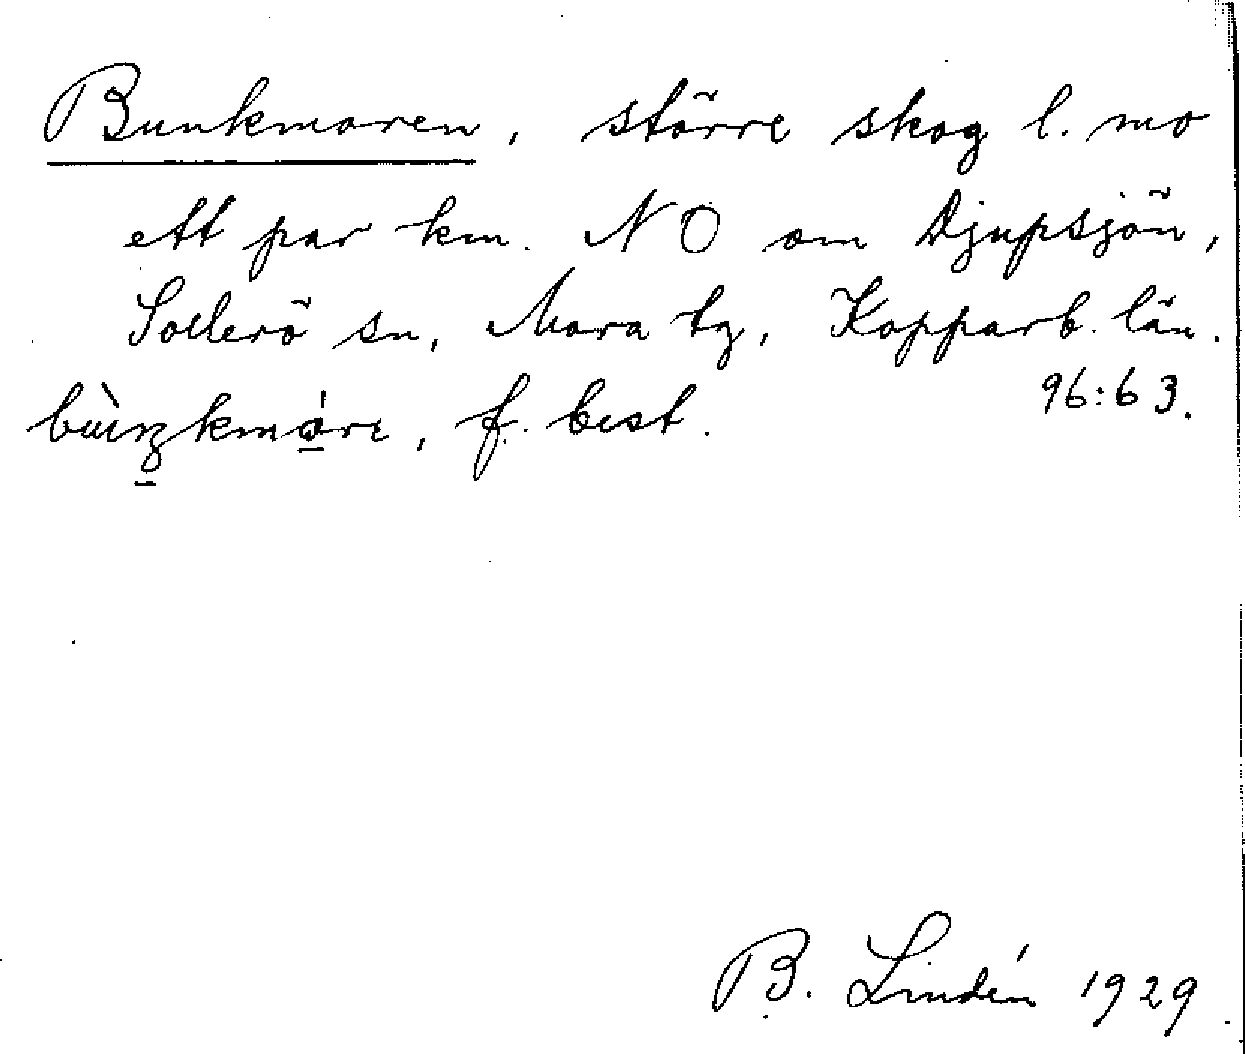 Bunkmoren, större skog l. mo
ett par km. NO om Djupsjön,
Sollerö sn, Mora tg, Kopparb. län.
96:63.
f. best.
B. Lindén 1929